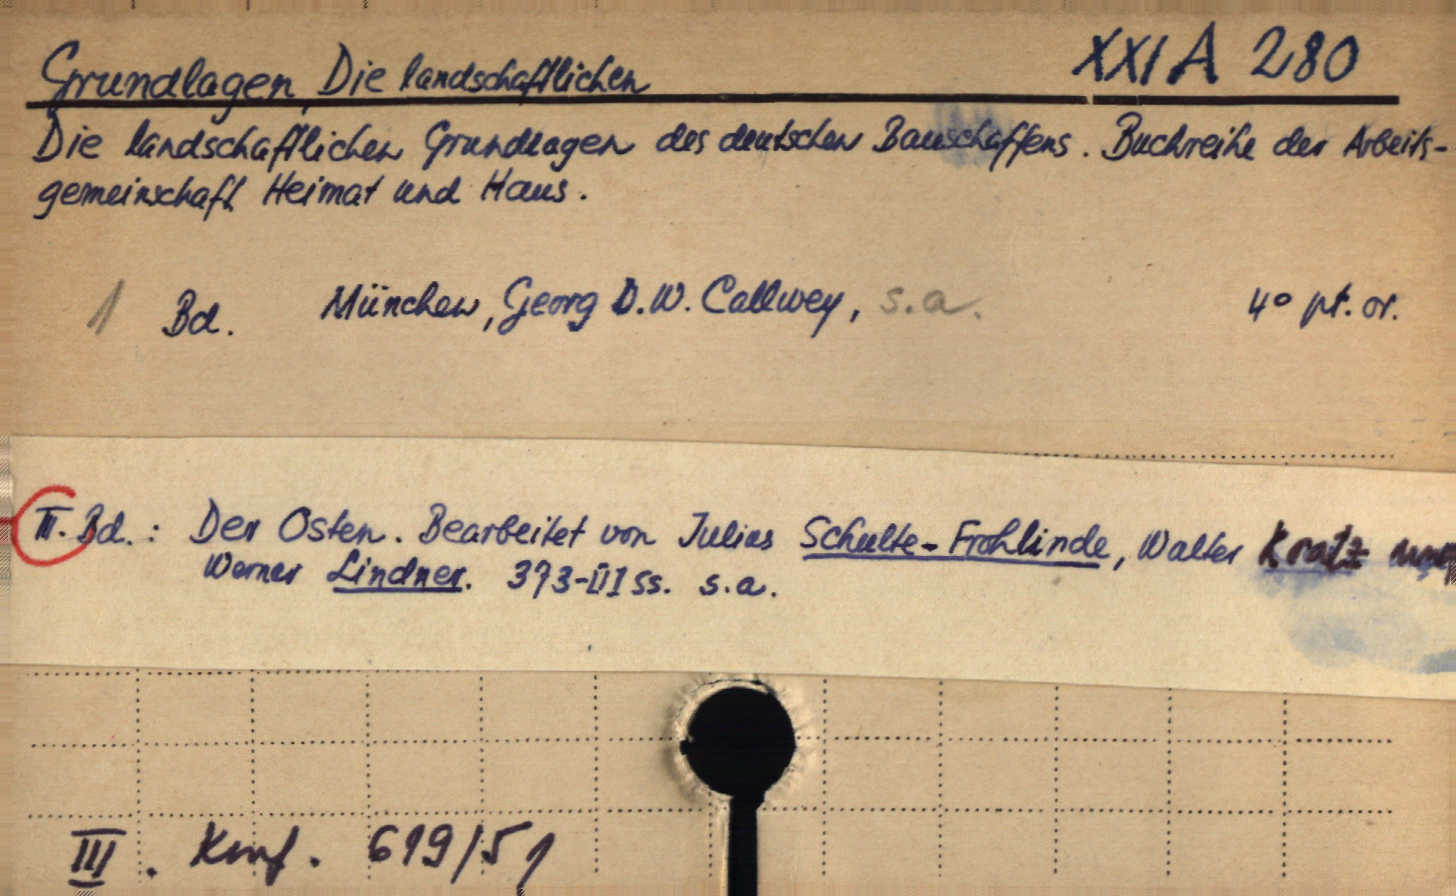 XXI A 280
Grundlagen, Die landschaftlichen
Die landschaftlichen Grundlagen des deutschen Bauschaffens. Buchreihe der Arbeits-
gemeinschaft Heimat und Haus.
1 Bd. München, Georg D.W. Callwey, s.a. 4° pt. or.
III. Bd.: Der Osten. Bearbeitet von Julius Schulte-Frohlinde, Walter Kratz und
Werner Lindner. 373-III ss. s.a.
III. Konf. 619/51